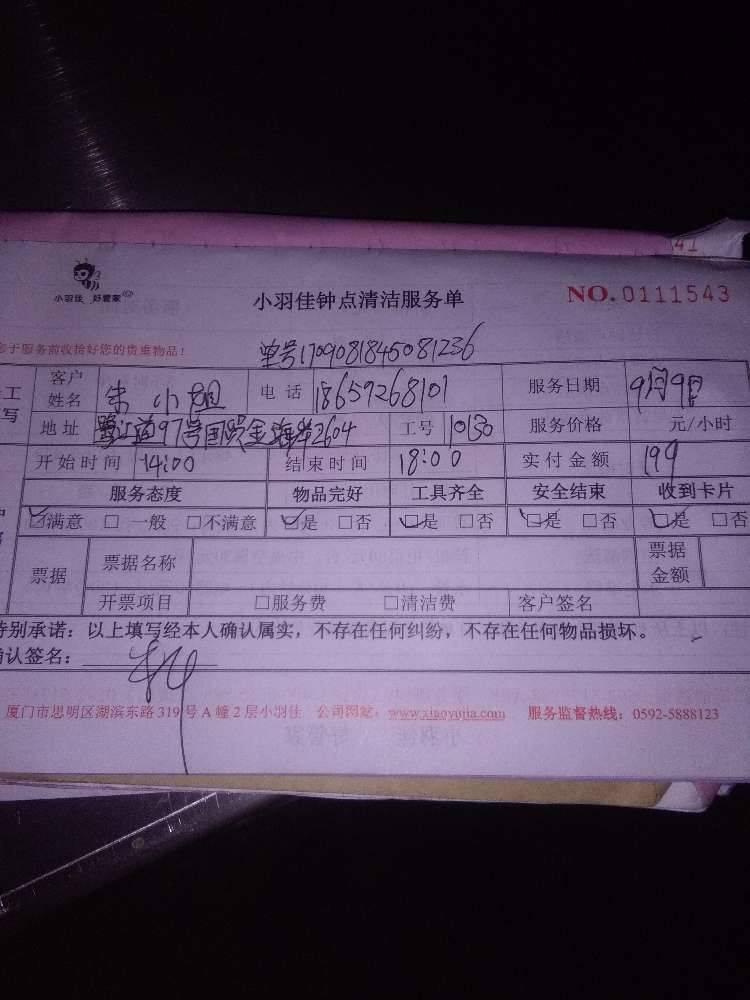 41
小羽佳 好管家
小羽佳钟点清洁服务单
NO. 0111543
于服务前收拾好您的贵重物品！
单号1709081845081236
工 客户姓名 朱小姐 电话 18659268101 服务日期 9月9日
写 地址 鹭江道97号国贸金海岸2604 工号 10130 服务价格 元/小时
开始时间 14:00 结束时间 18:00 实付金额 199
服务态度 物品完好 工具齐全 安全结束 收到卡片
☑满意 □一般 □不满意 ☑是 □否 ☑是 □否 ☑是 □否 ☑是 □否
票据 票据名称 票据金额
开票项目 □服务费 □清洁费 客户签名
特别承诺：以上填写经本人确认属实，不存在任何纠纷，不存在任何物品损坏。
确认签名：
厦门市思明区湖滨东路319号A幢2层小羽佳 公司网站：www.xiaoyujia.com 服务监督热线：0592-5888123